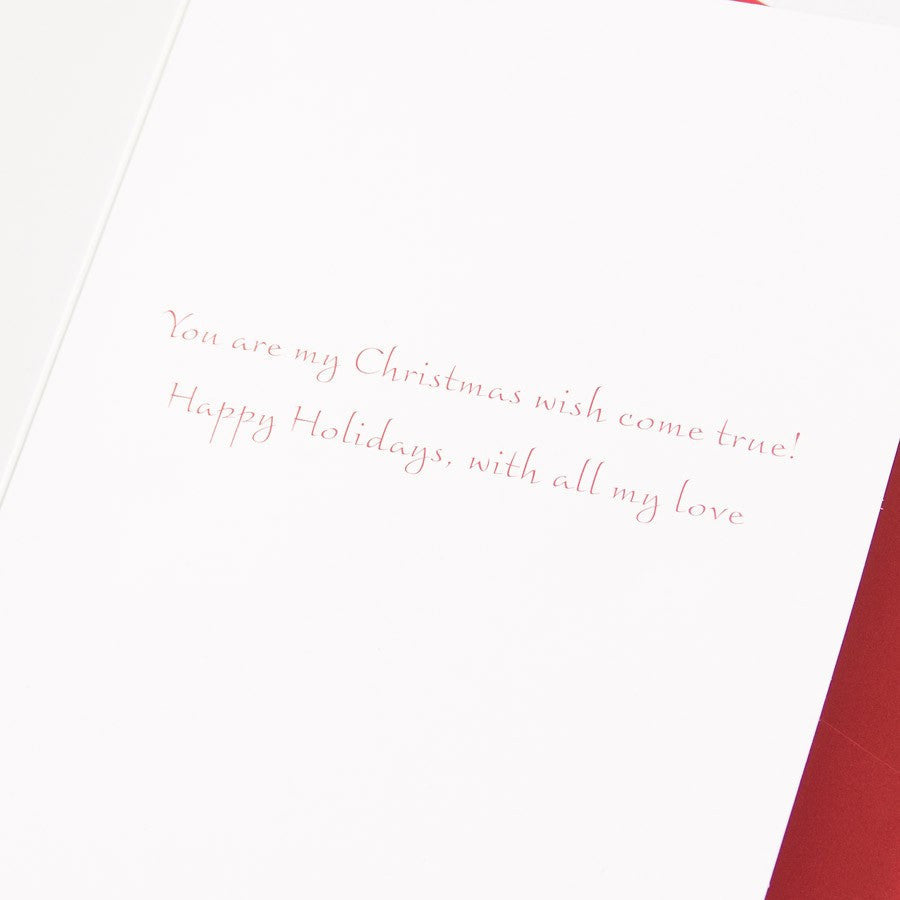 You are my Christmas wish come true!
Happy Holidays, with all my love